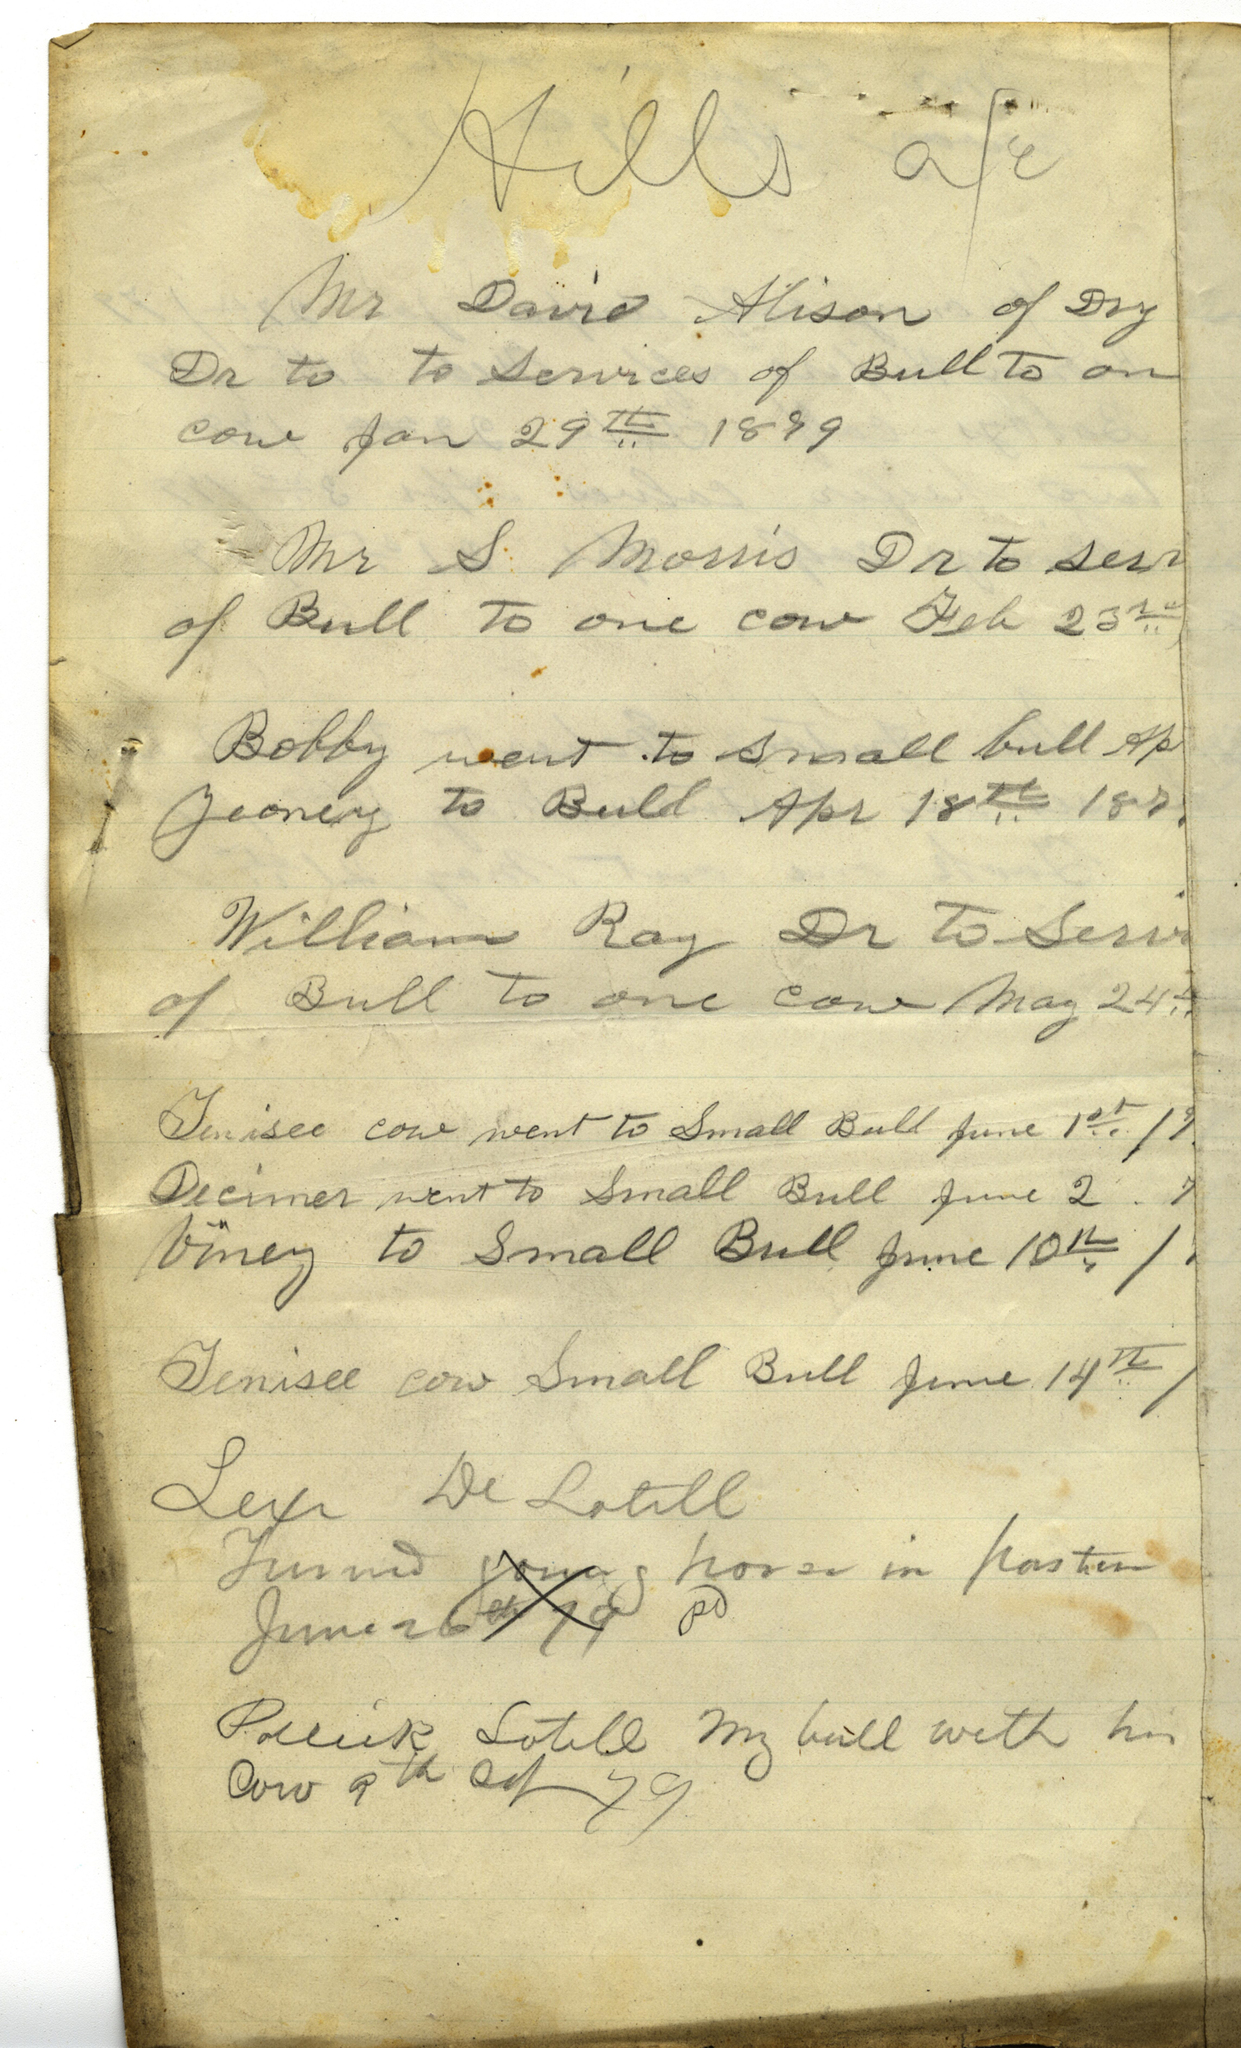 Hills a/c
Mr David Alison of Dry
Dr to to Services of Bull to on
cow Jan 29th 1879
Mr S Morris Dr to serv
of Bull to one cow Feb 23rd
Bobby went to small bull Ap
to Bull Apr 18th 187
William Ray Dr to Servi
of Bull to one cow May 24t
Tenisee cow went to Small Bull June 1st /7
Decimer went to Small Bull June 2 . 7
Viney to Small Bull June 10th /
Tenisee cow Small Bull June 14th /
De Lotell
Turned young horse in pastur
June 26th 79 pd
Lotell My bull with his
Cow 9th 79